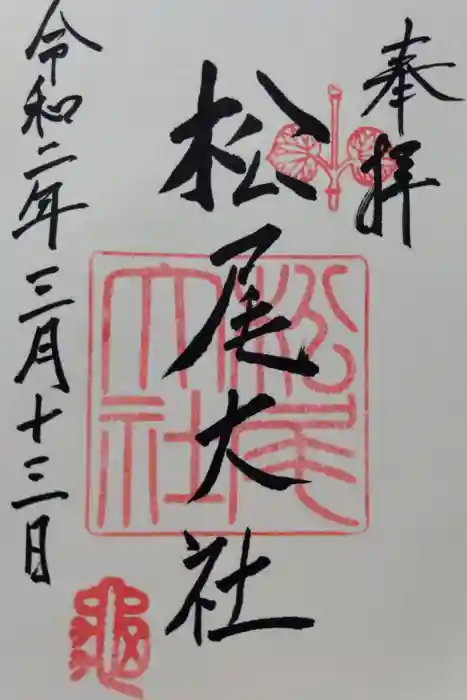 奉拝
松尾大社
松尾大社
令和二年三月十三日
龜